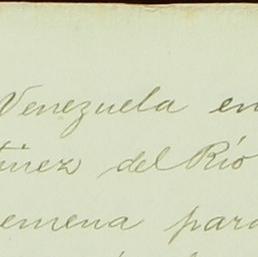 Venezuela en
tínez del Río
emena para